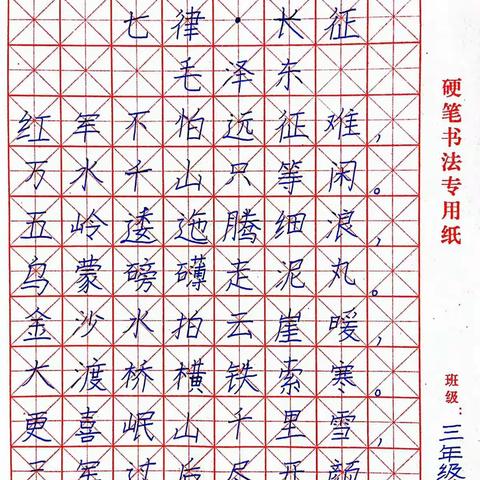 七律·长征
毛泽东
红军不怕远征难，
万水千山只等闲。
五岭逶迤腾细浪，
乌蒙磅礴走泥丸。
金沙水拍云崖暖，
大渡桥横铁索寒。
更喜岷山千里雪，
三军过后尽开颜
硬笔书法专用纸
班级：三年级